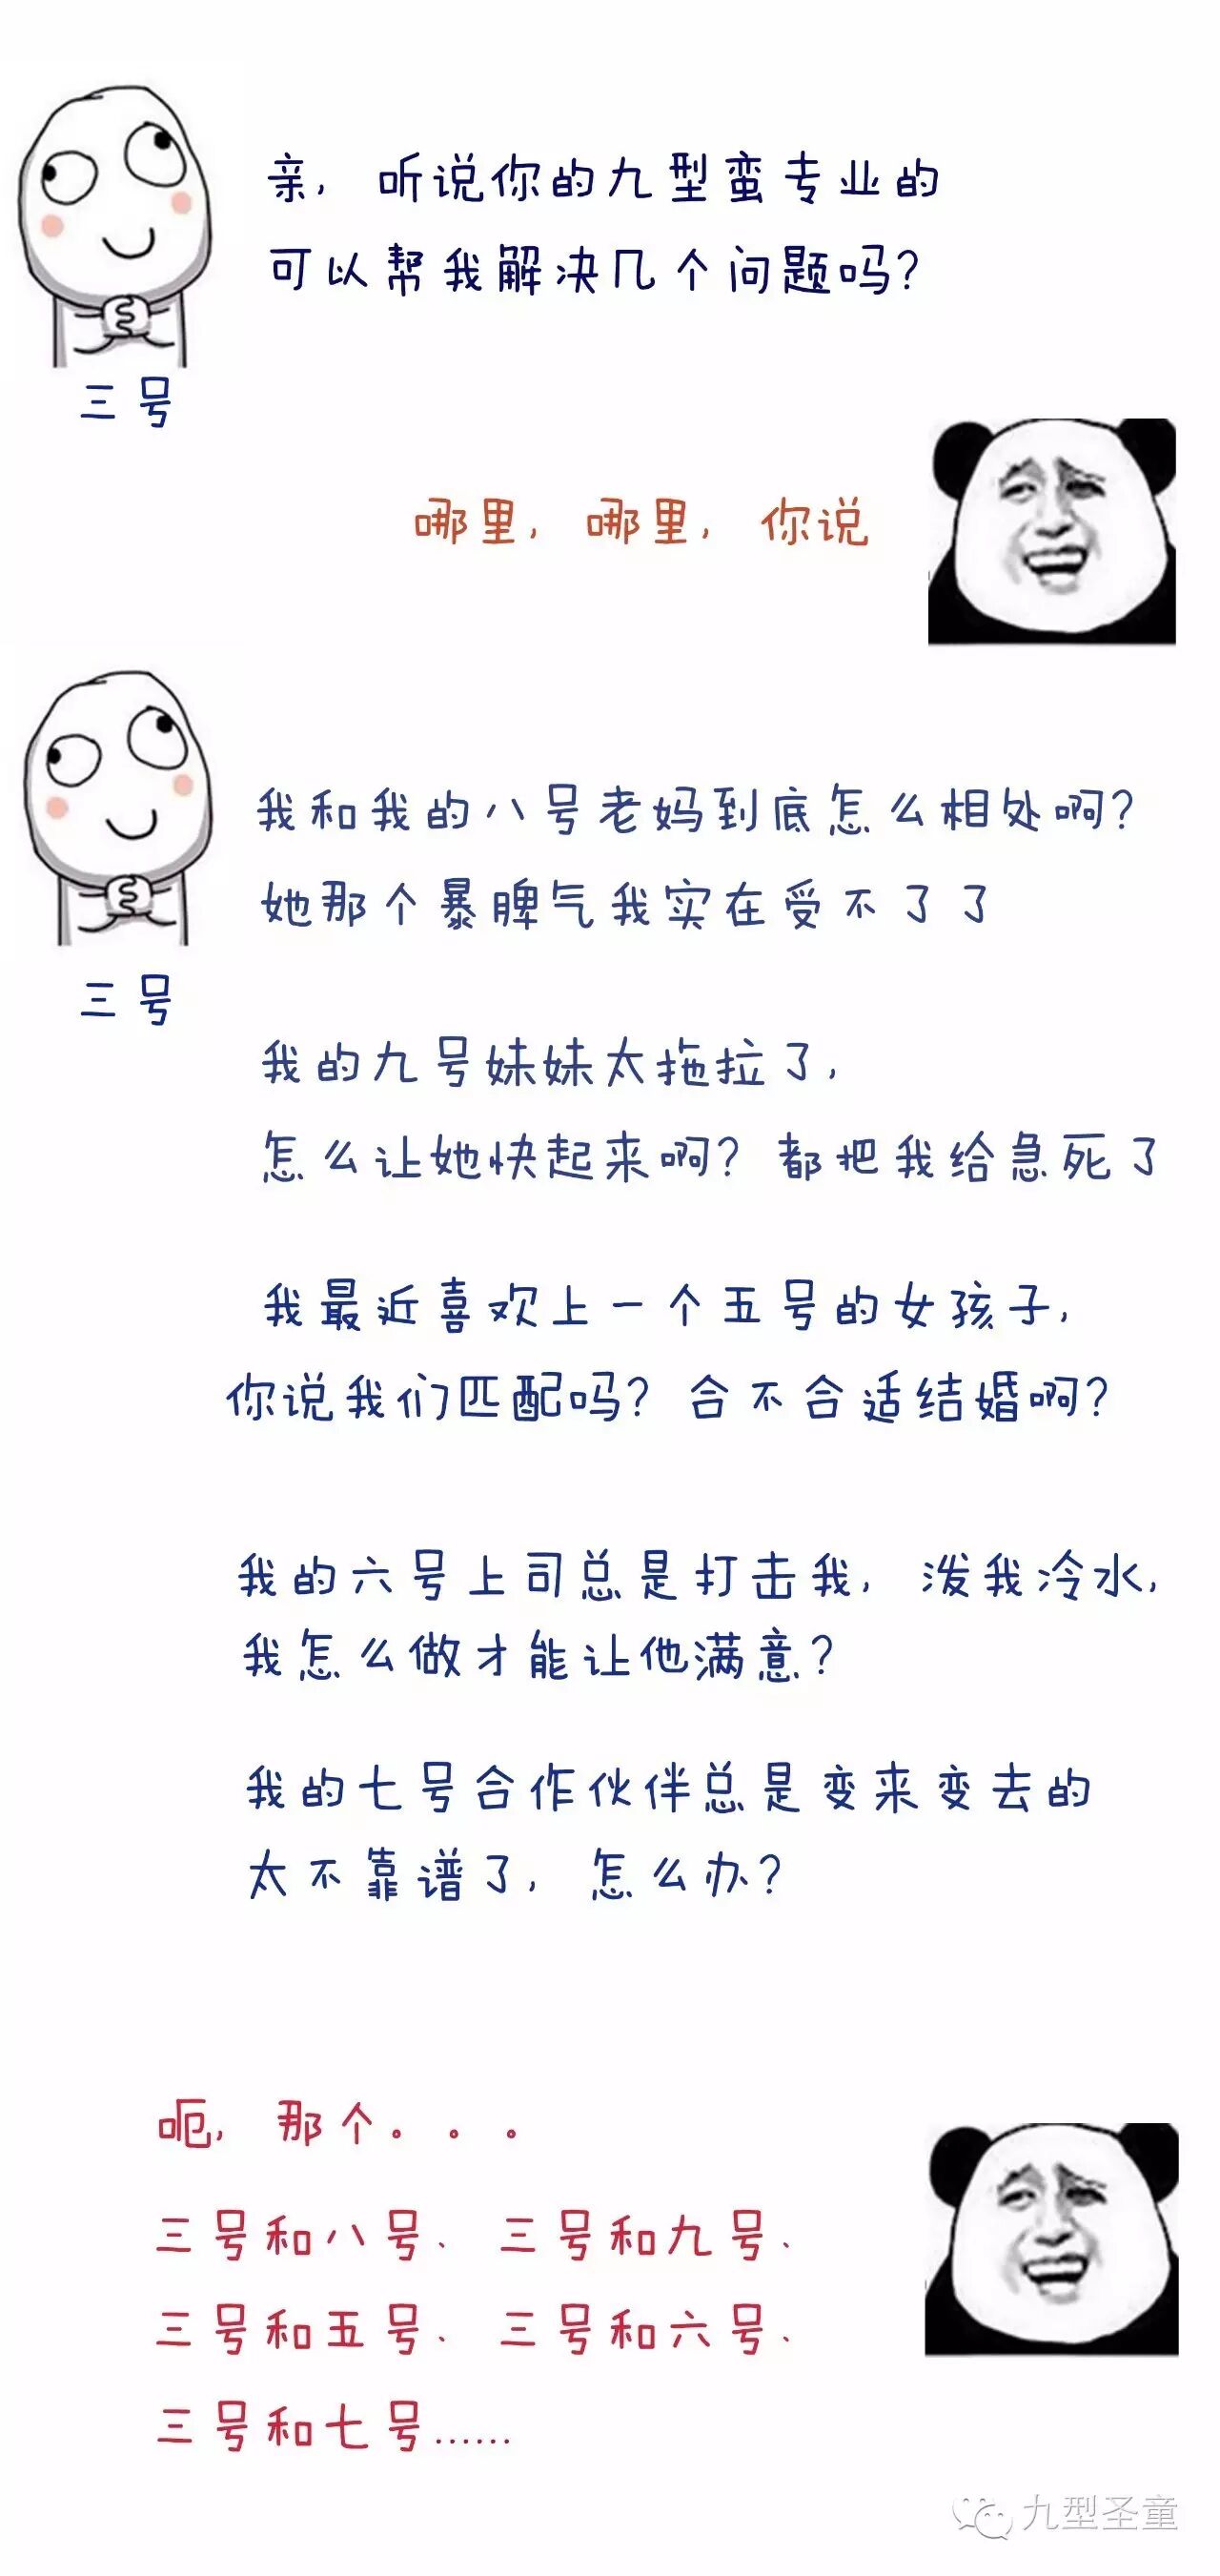 亲，听说你的九型蛮专业的
可以帮我解决几个问题吗？
三号
哪里，哪里，你说
我和我的八号老妈到底怎么相处啊？
她那个暴脾气我实在受不了了
三号
我的九号妹妹太拖拉了，
怎么让她快起来啊？都把我给急死了
我最近喜欢上一个五号的女孩子，
你说我们匹配吗？合不合适结婚啊？
我的六号上司总是打击我，泼我冷水，
我怎么做才能让他满意？
我的七号合作伙伴总是变来变去的
太不靠谱了，怎么办？
呃，那个。。。
三号和八号、三号和九号、
三号和五号、三号和六号、
三号和七号......
九型圣童